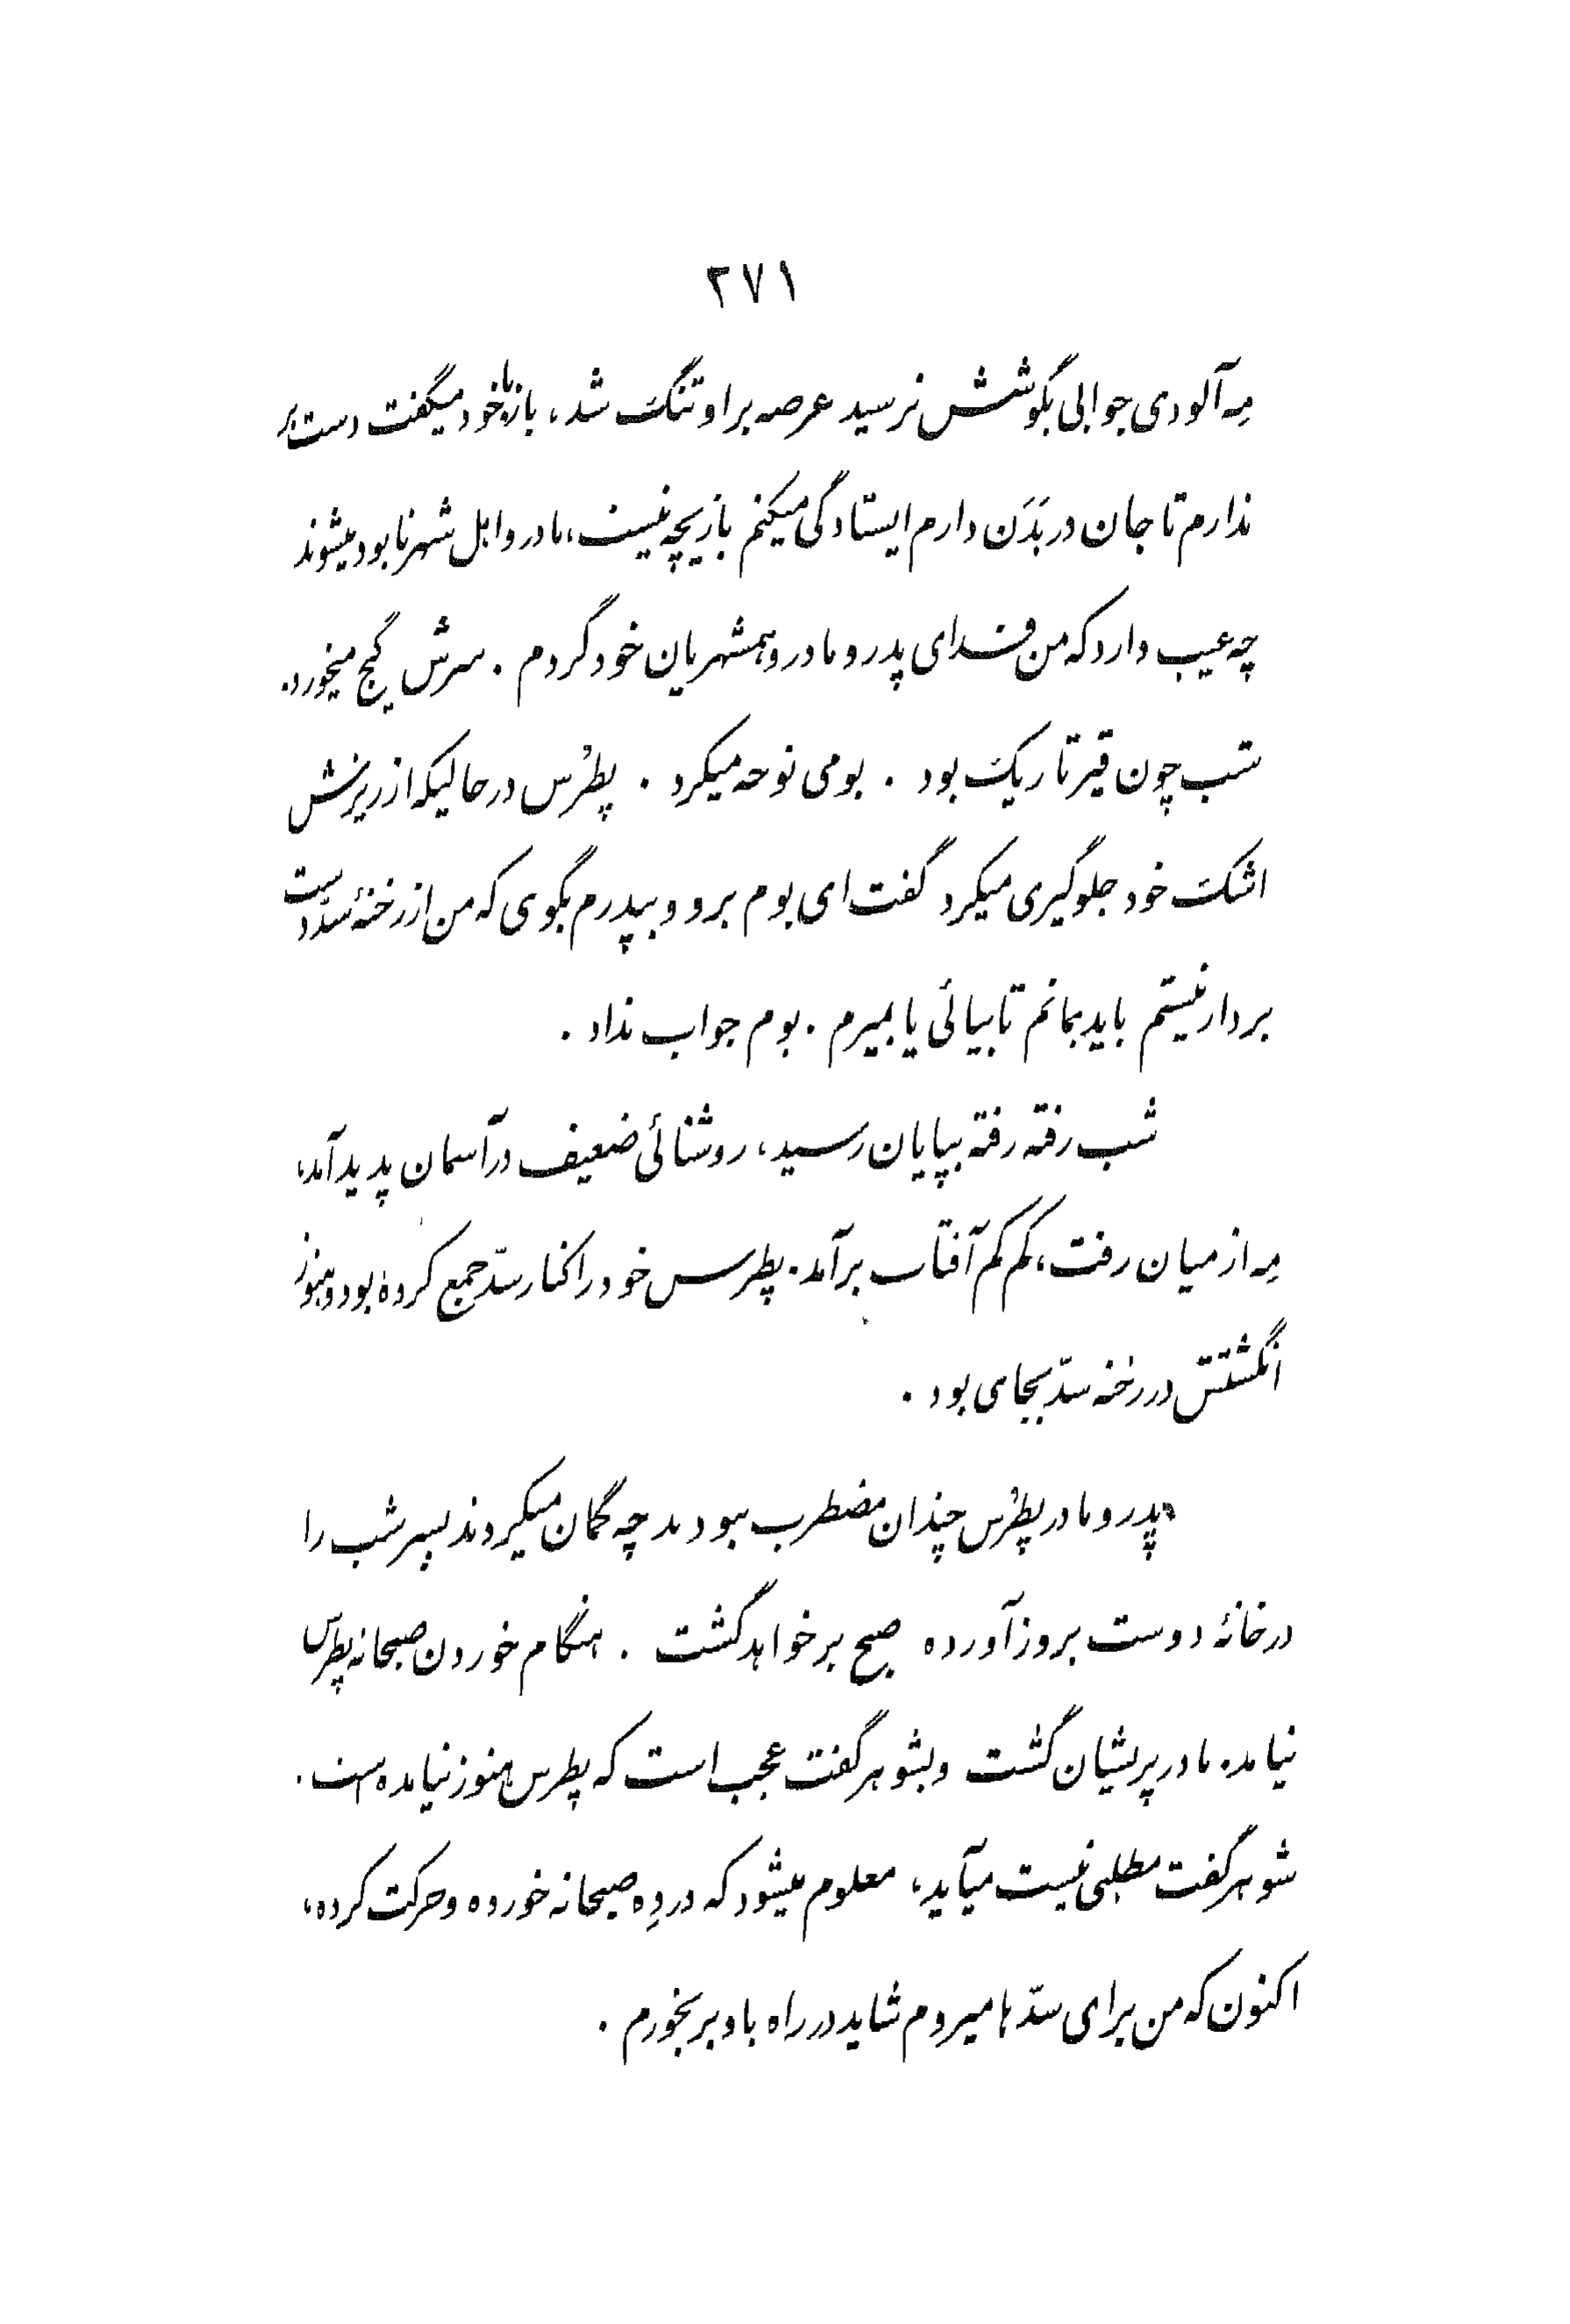 ۲۷۱
مِه آلودی جوابی بگوشش نرسید عرصه بر او تنگ شد، باز با خود میگفت دست بر
ندارم تا جان در بَدَن دارم ایستادگی میکنم بازیچه نیست، مادر و اهل شهر نابود میشوند
چه عیب دارد که من فدای پدر و مادر و همشهریان خود گردم . سرش گیج میخورد.
شب چون قیر تاریک بود . بومی نوحه میکرد . پطرُس در حالیکه از ریزش
اشک خود جلوگیری میکرد گفت ای بوم برو و بپدرم بگوی که من از رخنهٔ سدّ دست
بردار نیستم باید بمانم تا بیائی یا بمیرم . بوم جواب نداد .
شب رفته رفته بپایان رسید، روشنائی ضعیف در آسمان پدید آمد،
مِه از میان رفت، کم کم آفتاب برآمد. پطرس خود را کنار سدّ جمع کرده بود و هنوز
انگشتش در رخنه سدّ بجای بود .
پدر و مادر پطرُس چندان مضطرب نبودند چه گمان میکردند پسر شب را
در خانهٔ دوست بروز آورده صبح بر خواهد گشت . هنگام خوردن صبحانه پطرس
نیامد. مادر پریشان گشت و بشوهر گفت عجب است که پطرس هنوز نیامده است .
شوهر گفت مطلبی نیست میآید، معلوم میشود که در دِه صبحانه خورده و حرکت کرده،
اکنون که من برای سدّ ها میروم شاید در راه باو بر بخورم .